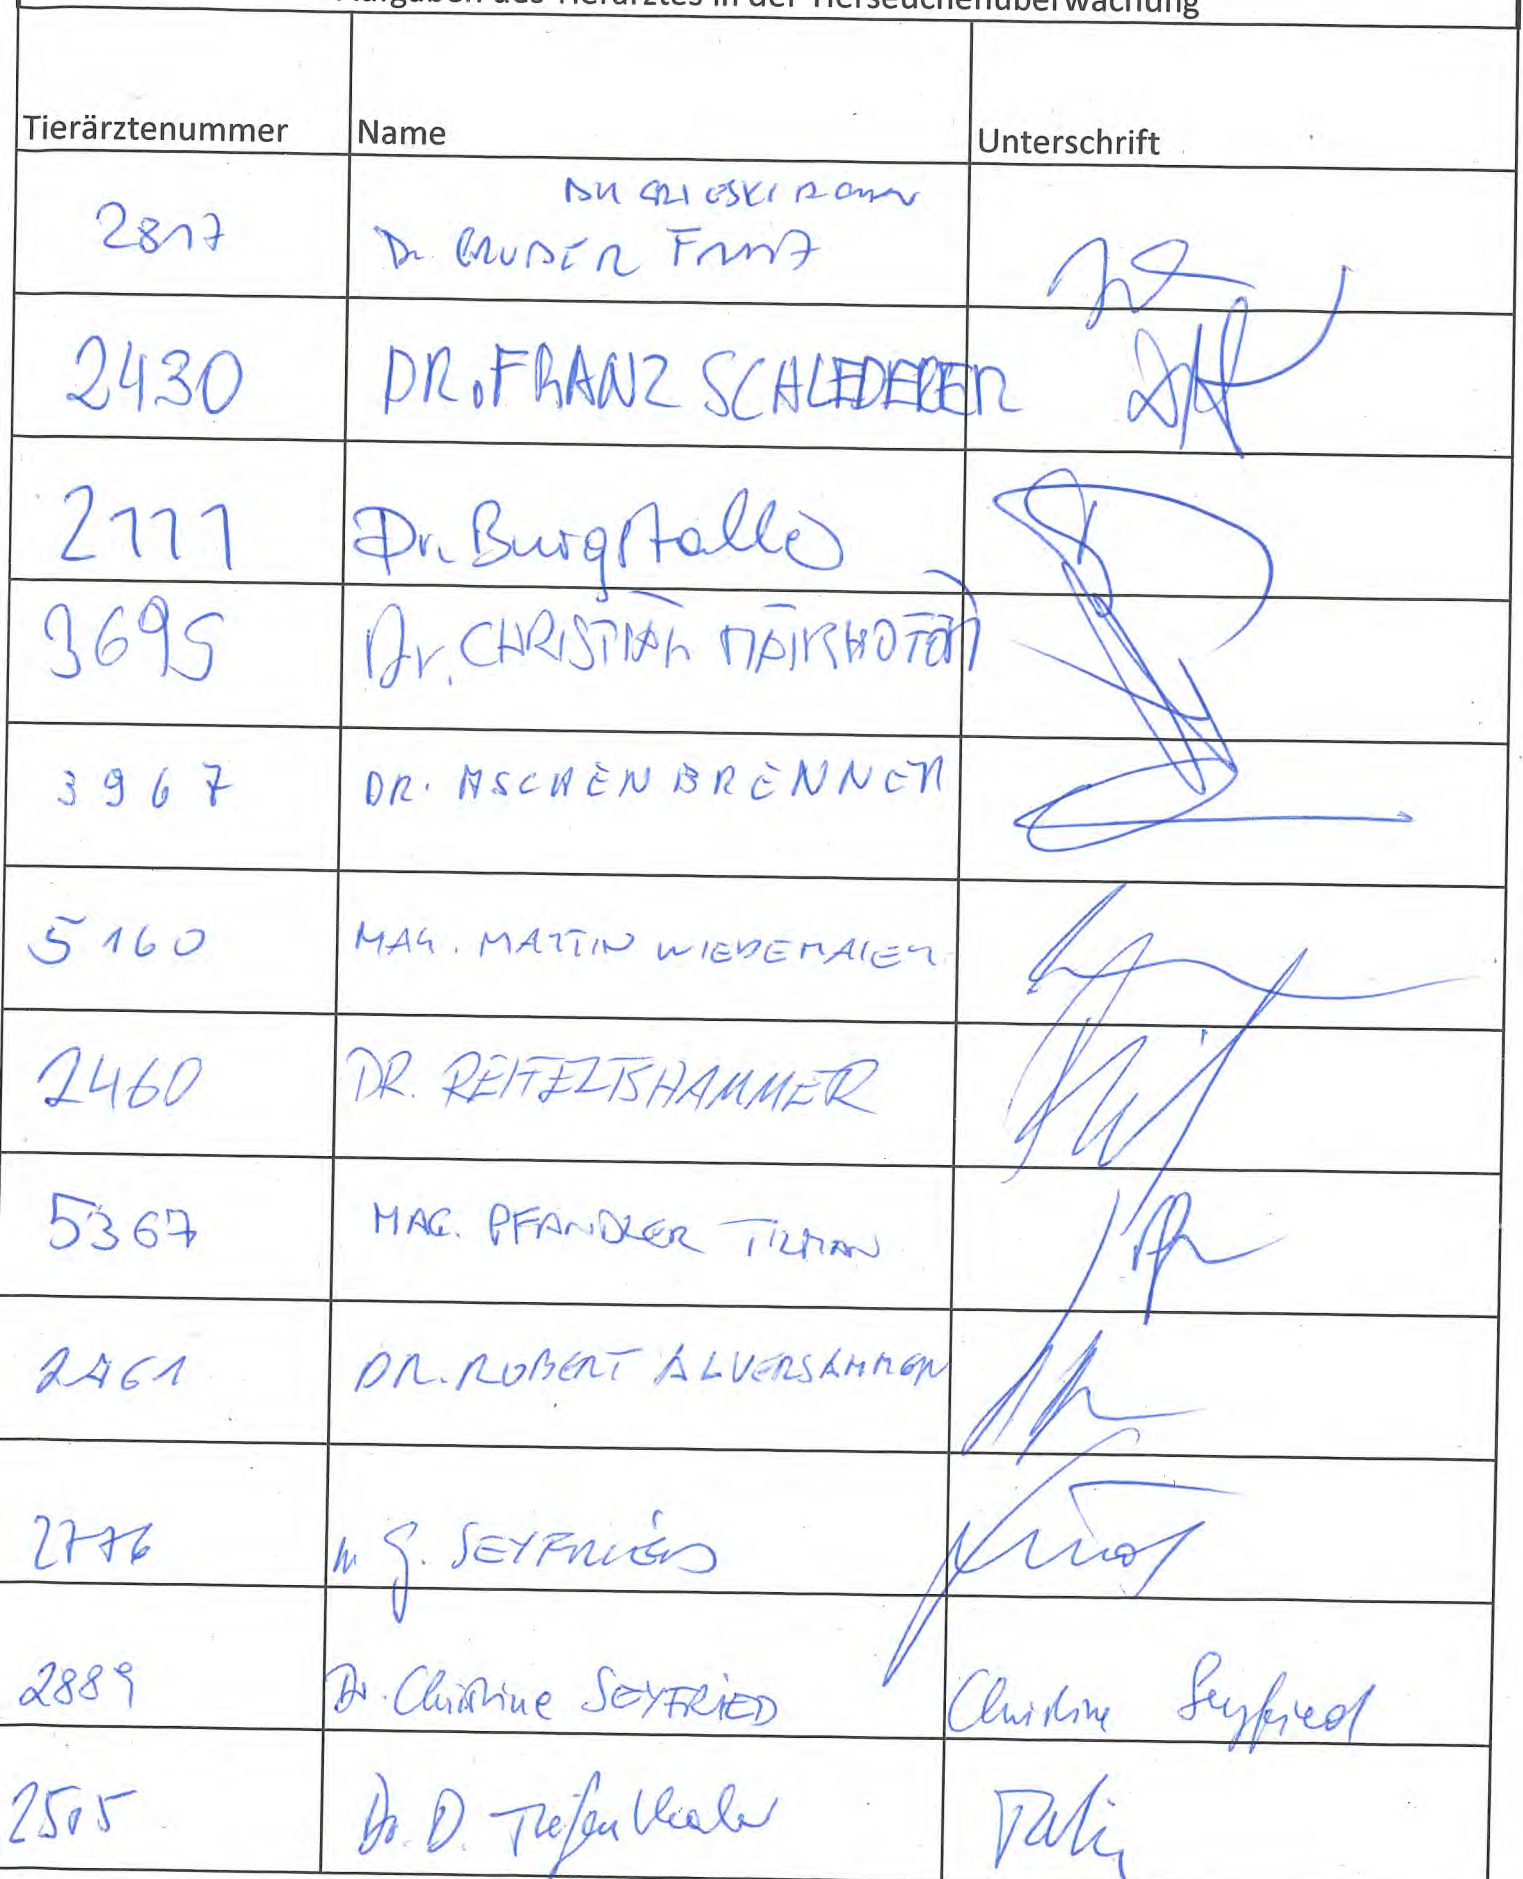 Aufgaben des Tierarztes in der Tierseuchenüberwachung
Tierärztenummer Name Unterschrift
2817 Dr. GRUBER Franz
2430 DR. FRANZ SCHLEDERER
2111 Dr. Burgstaller
3695 Dr. CHRISTIAN MAIRHOFER
3967 DR. ASCHENBRENNER
5160 MAG. MARTIN WIEDEMAIER
2460 DR. REITELTSHAMMER
5367 MAG. PFANDLER TILMAN
2461 DR. ROBERT ALVERSAMMER
2776 G. SEYFRIED
2889 Dr. Christine SEYFRIED Christine Seyfried
2505 Dr. D. Tiefenthaler